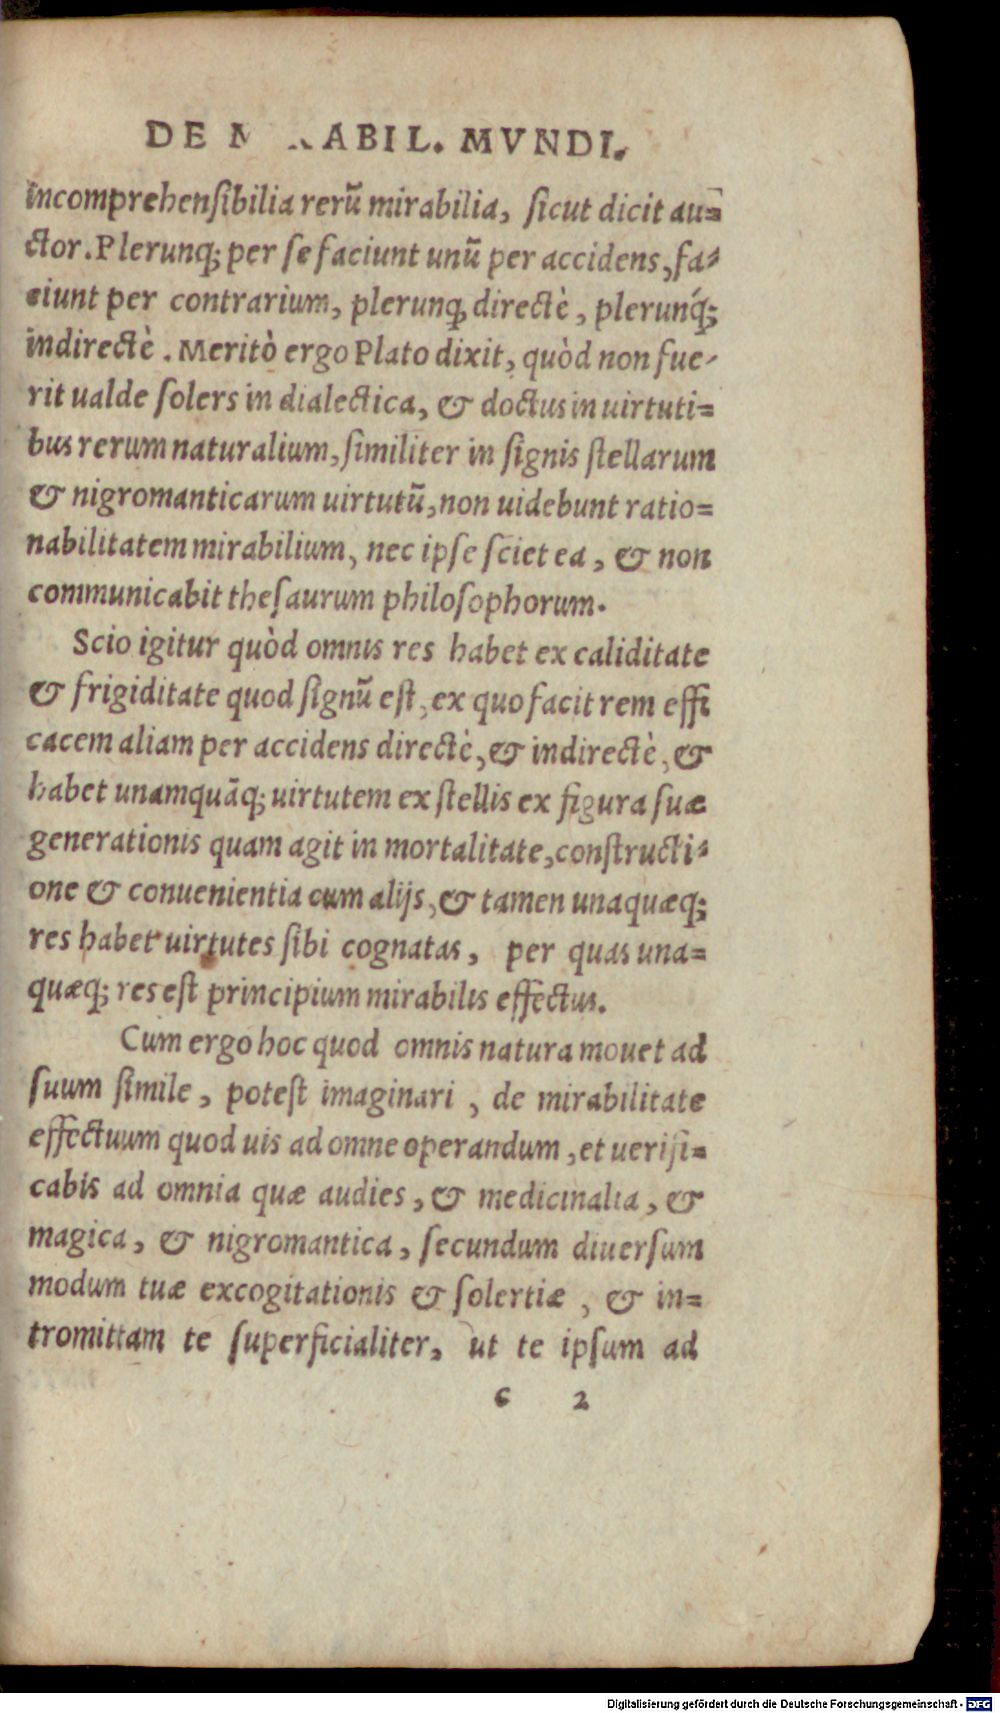 DE M RABIL. MVNDI.
incomprehensibilia rerū mirabilia, sicut dicit au=
ctor. Plerunq; per se faciunt unū per accidens, fa-
ciunt per contrarium, plerunq; directè, plerunq́;
indirectè. Meritò ergo Plato dixit, quòd non fue-
rit ualde solers in dialectica, & doctus in uirtuti=
bus rerum naturalium, similiter in signis stellarum
& nigromanticarum uirtutū, non uidebunt ratio=
nabilitatem mirabilium, nec ipse sciet ea, & non
communicabit thesaurum philosophorum.
Scio igitur quòd omnis res habet ex caliditate
& frigiditate quod signū est, ex quo facit rem effi
cacem aliam per accidens directè, & indirectè, &
habet unamquāq; uirtutem ex stellis ex figura suæ
generationis quam agit in mortalitate, constructi-
one & conuenientia cum alijs, & tamen unaquæq;
res habet uirtutes sibi cognatas, per quas una=
quæq; res est principium mirabilis effectus.
Cum ergo hoc quod omnis natura mouet ad
suum simile, potest imaginari, de mirabilitate
effectuum quod uis ad omne operandum, et uerifi=
cabis ad omnia quæ audies, & medicinalia, &
magica, & nigromantica, secundum diuersum
modum tuæ excogitationis & solertiæ, & in=
tromittam te superficialiter, ut te ipsum ad
c 2
Digitalisierung gefördert durch die Deutsche Forschungsgemeinschaft - DFG